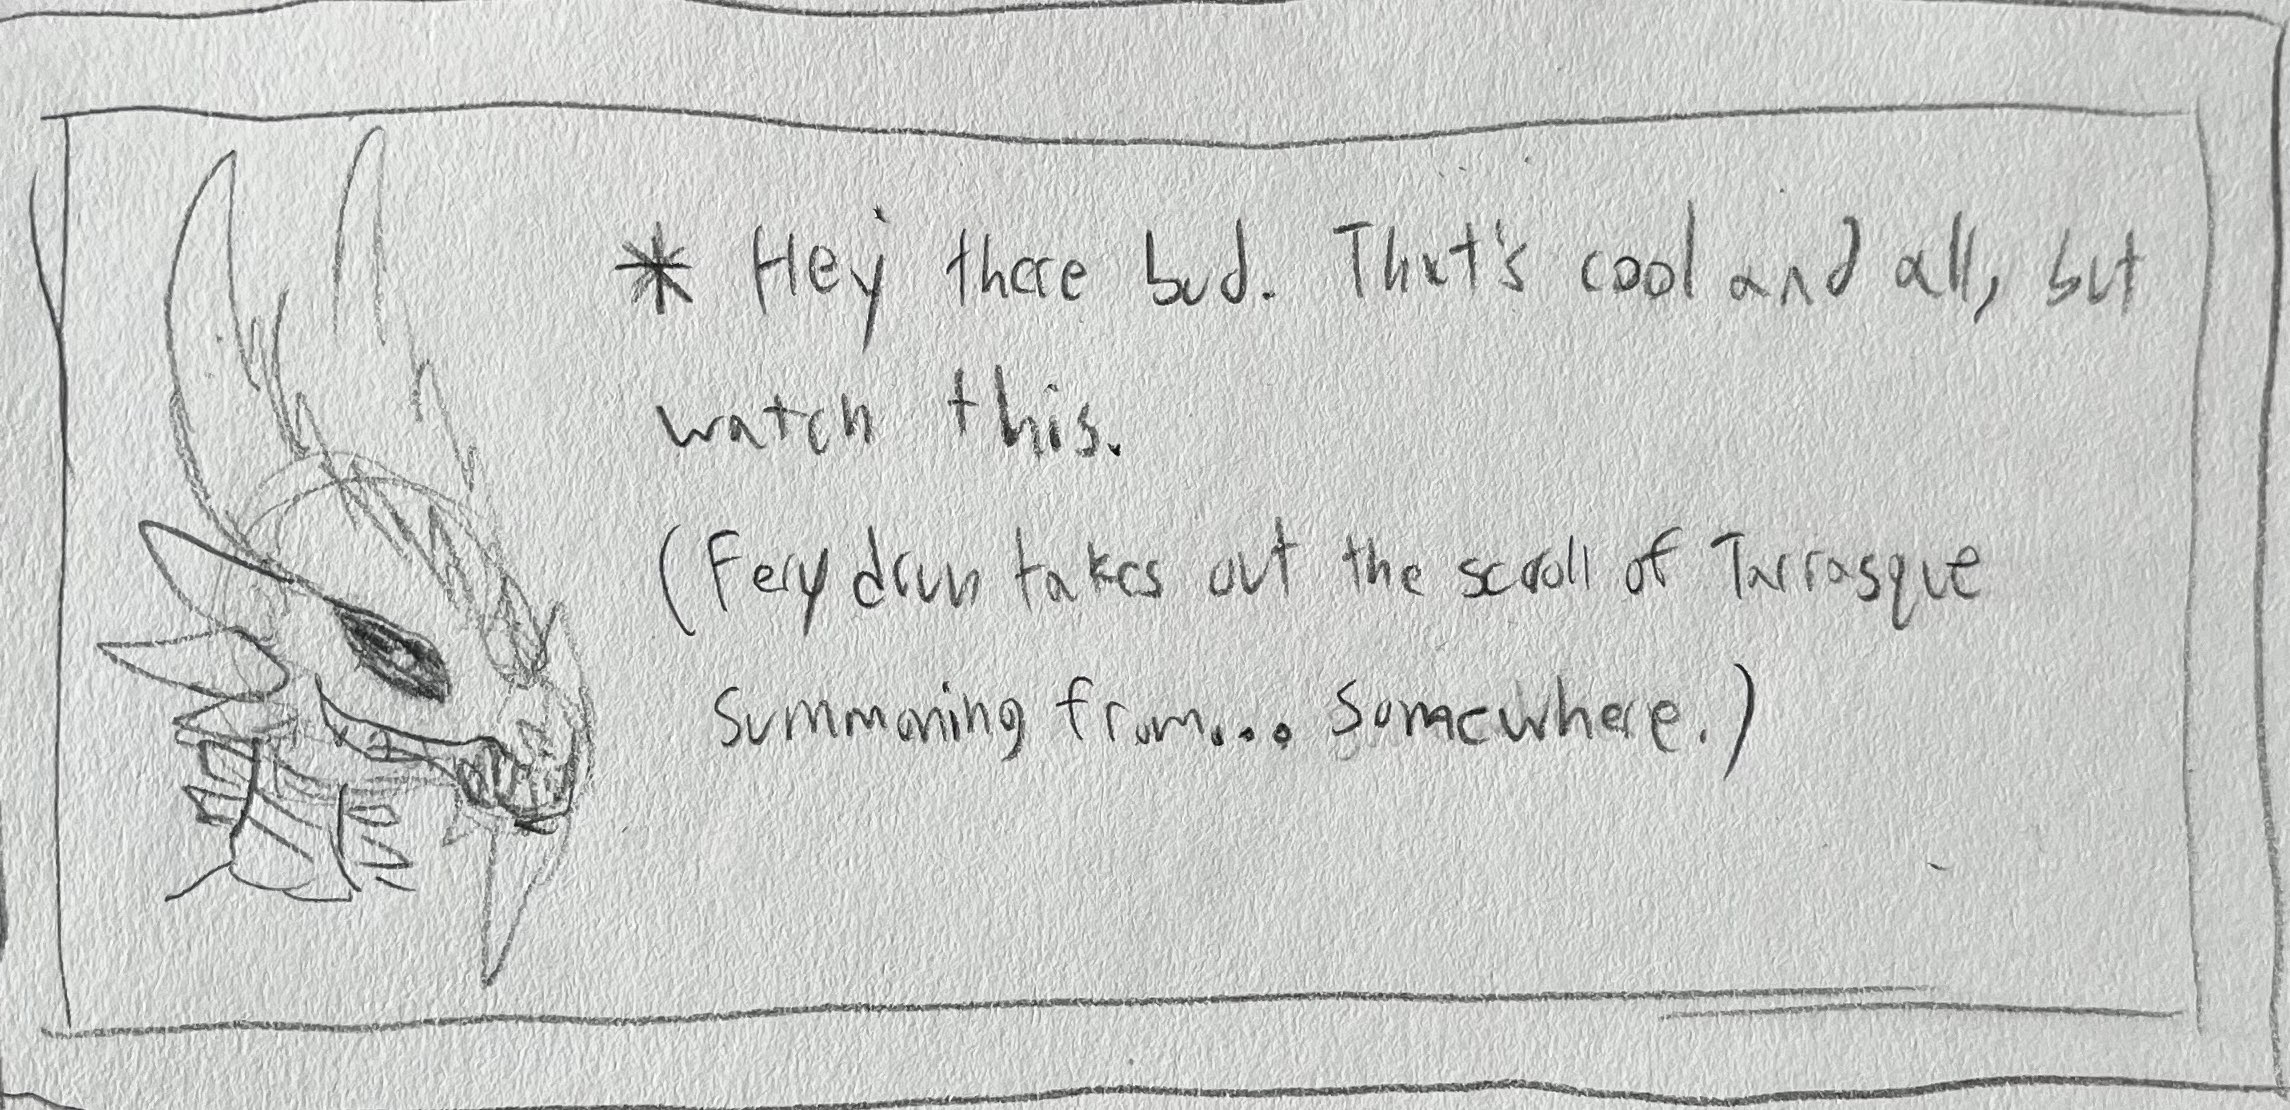 * Hey there bud. That's cool and all, but
watch this.
(Ferydrun takes out the scroll of Tarrasque
summoning from... Somewhere.)